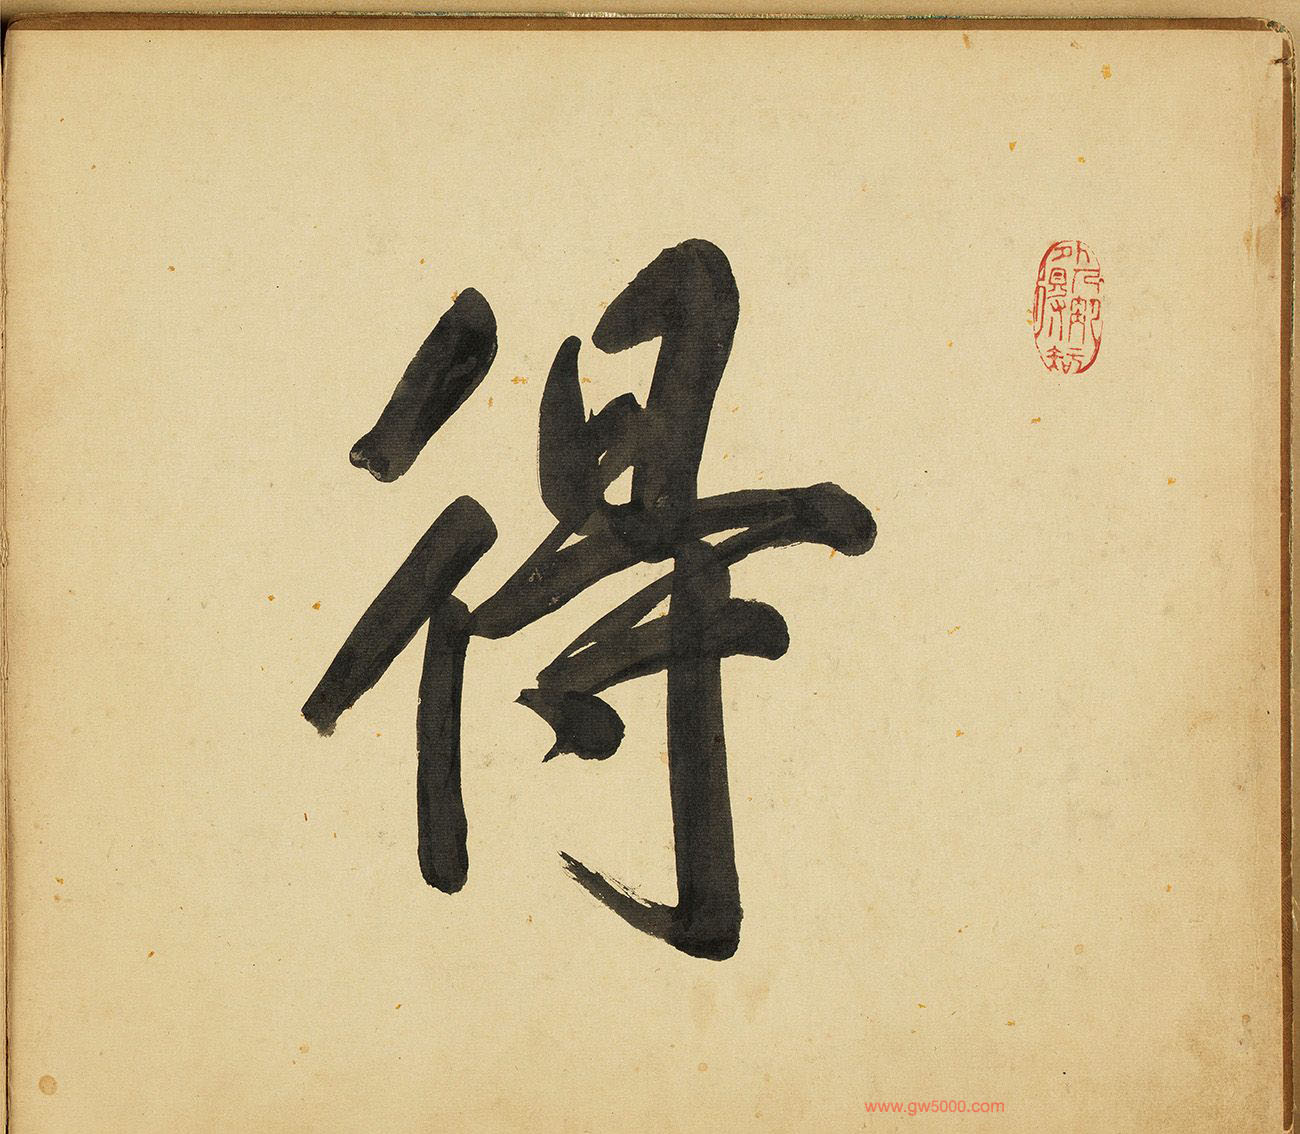 得
www.gw5000.com